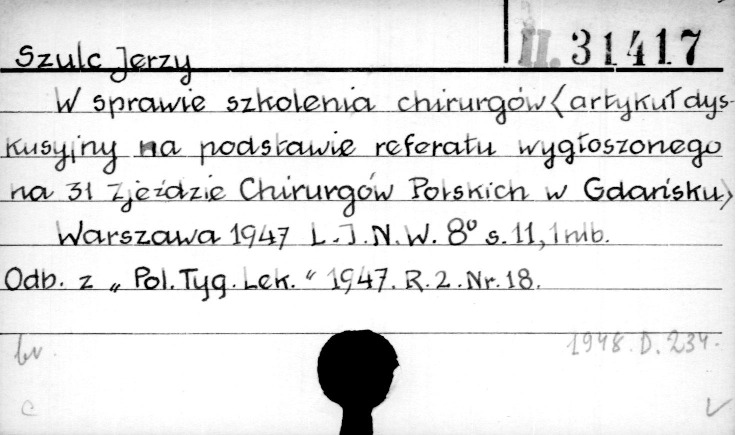 II. 31417
Szulc Jerzy
W sprawie szkolenia chirurgów <artykuł dys-
kusyjny na podstawie referatu wygłoszonego
na 31 Zjeździe Chirurgów Polskich w Gdańsku>
Warszawa 1947 L.I.N.W. 8° s. 11, 1 nlb.
Odb. z „Pol. Tyg. Lek." 1947. R. 2. Nr. 18.
1948. D. 234.
c